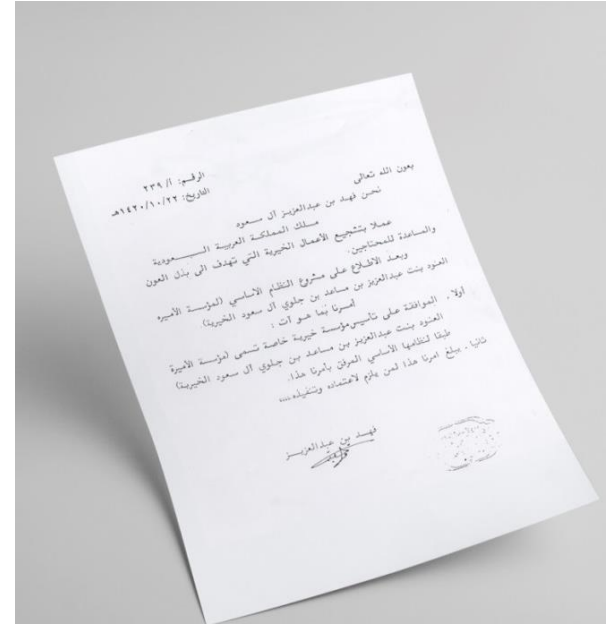 الرقم: أ/ ٢٣٩
التاريخ: ١٤٢٠/١٠/٢٢هـ
بعون الله تعالى
نحن فهد بن عبدالعزيز آل سعود
ملك المملكة العربية السعودية
عملا بتشجيع الأعمال الخيرية التي تهدف الى بذل العون
والمساعدة للمحتاجين.
وبعد الاطلاع على مشروع النظام الاساسي (لمؤسسة الأميره
العنود بنت عبدالعزيز بن مساعد بن جلوي آل سعود الخيرية).
أمرنا بما هو آت :
أولا . الموافقة على تأسيس مؤسسة خيرية خاصة تسمى (مؤسسة الأميرة
العنود بنت عبدالعزيز بن مساعد بن جلوي آل سعود الخيرية)
طبقا لنظامها الأساسي المرفق بأمرنا هذا.
ثانيا . يبلغ امرنا هذا لمن يلزم لاعتماده وتنفيذه،،،،
فهد بن عبدالعزيز